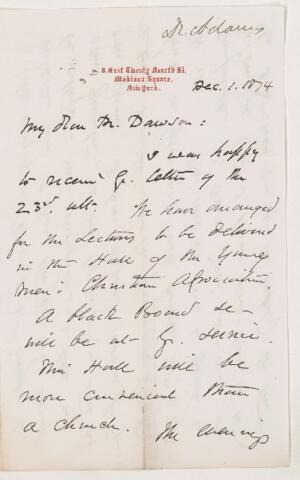 Dr Adams
8. East Twenty Fourth St.
Madison Square.
New York.
Dec. 1. 1874
My dear Dr. Dawson:
I was happy
to receive yr. letter of the
23rd. ult. We have arranged
for the Lectures to be delivered
in the Hall of the Young
Men's Christian Association.
A black Board &c
will be at yr. service.
This Hall will be
more convenient than
a church. The evenings